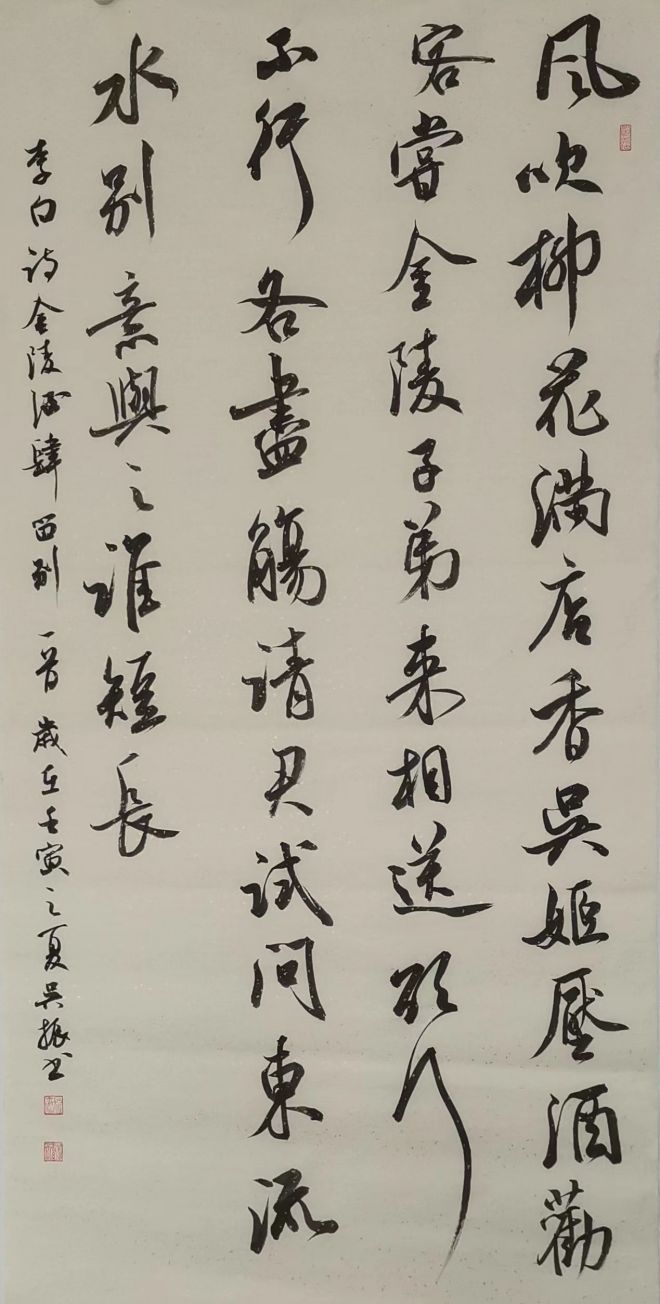 風吹柳花满店香吳姬壓酒勸
客嘗金陵子弟来相送欲行
不行各盡觴請君試問東流
水别意與之誰短長
李白詩金陵酒肆留别一首歲在壬寅之夏吴振书